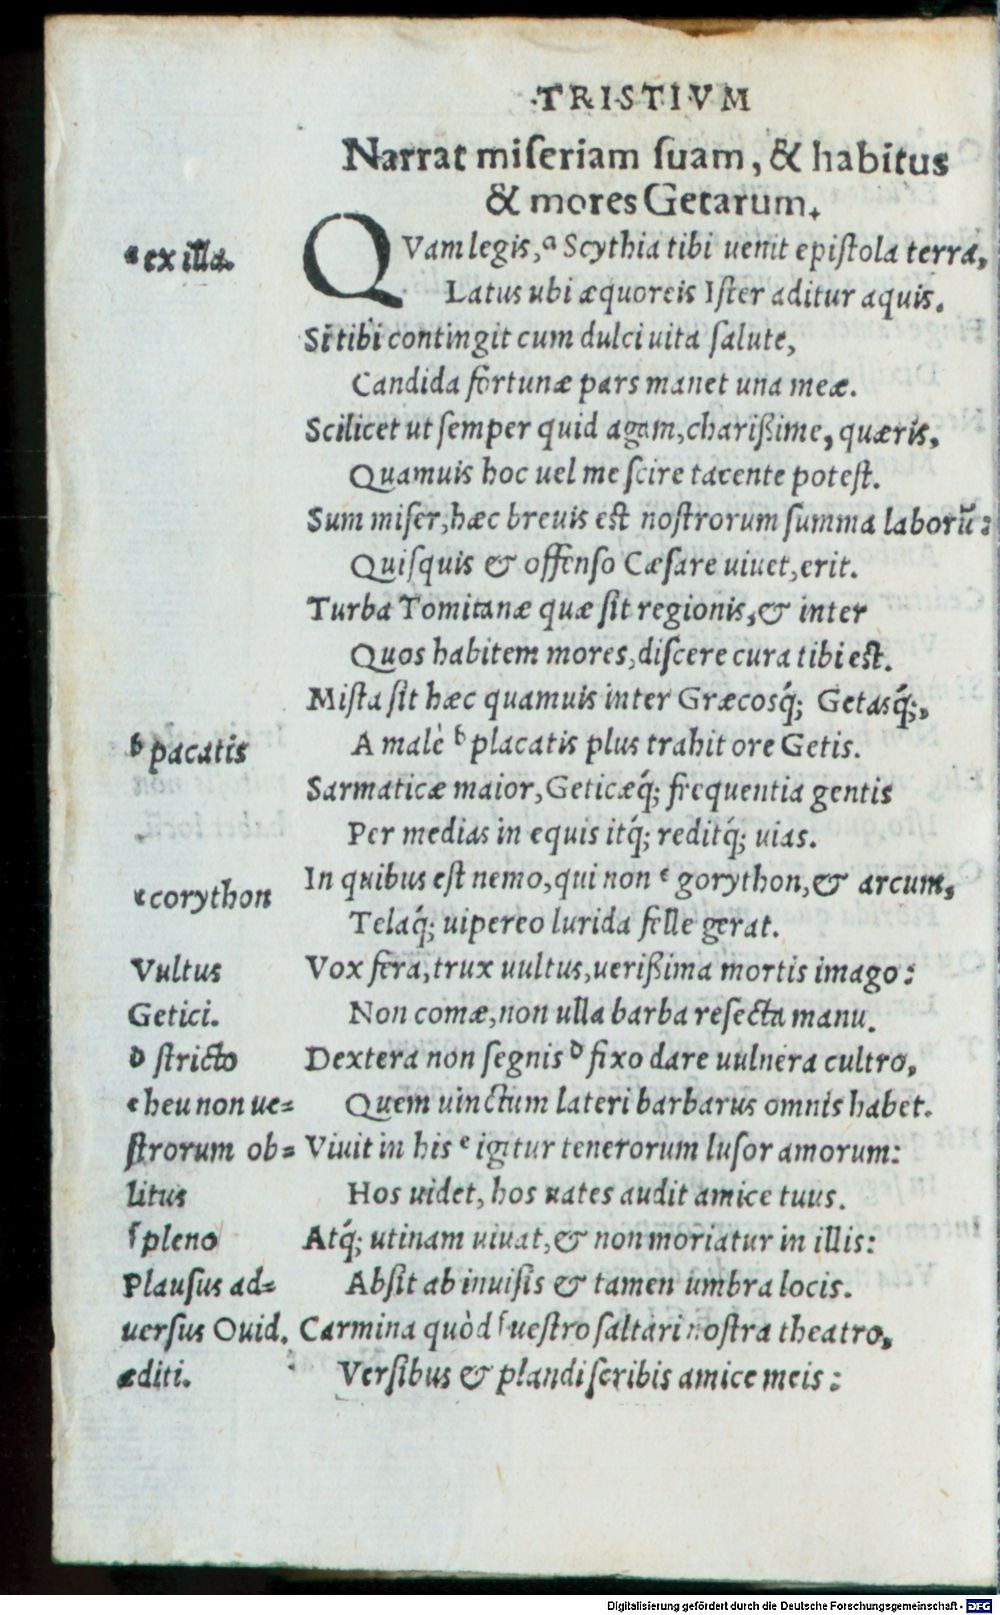 ·TRISTIVM
Narrat miſeriam ſuam, & habitus
& mores Getarum.
QVam legis, ª Scythia tibi uenit epiſtola terra,
ª ex illa.
Latus ubi æquoreis Iſter aditur aquis.
Si tibi contingit cum dulci uita ſalute,
Candida fortunæ pars manet una meæ.
Scilicet ut ſemper quid agam, charißime, quæris,
Quamuis hoc uel me ſcire tacente poteſt.
Sum miſer, hæc breuis eſt noſtrorum ſumma laborũ:
Quiſquis & offenſo Cæſare uiuet, erit.
Turba Tomitanæ quæ ſit regionis, & inter
Quos habitem mores, diſcere cura tibi eſt.
Miſta ſit hæc quamuis inter Græcosq́; Getasq́;,
A malè ᵇ placatis plus trahit ore Getis.
ᵇ pacatis
Sarmaticæ maior, Geticæq́; frequentia gentis
Per medias in equis itq́; reditq́; uias.
In quibus eſt nemo, qui non ᶜ gorython, & arcum,
ᶜ corython
Telaq́; uipereo lurida felle gerat.
Vultus
Vox fera, trux uultus, uerißima mortis imago:
Getici.
Non comæ, non ulla barba reſecta manu.
ᵈ ſtricto
Dextera non ſegnis ᵈ fixo dare uulnera cultro,
ᵉ heu non ue=
Quem uinctum lateri barbarus omnis habet.
ſtrorum ob=
Viuit in his ᵉ igitur tenerorum luſor amorum:
litus
Hos uidet, hos uates audit amice tuus.
ᶠ pleno
Atq́; utinam uiuat, & non moriatur in illis:
Plauſus ad=
Abſit ab inuiſis & tamen umbra locis.
uerſus Ouid.
Carmina quòd ᶠ ueſtro ſaltari noſtra theatro,
æditi.
Verſibus & plandi ſcribis amice meis:
Digitalisierung gefördert durch die Deutsche Forschungsgemeinschaft - DFG